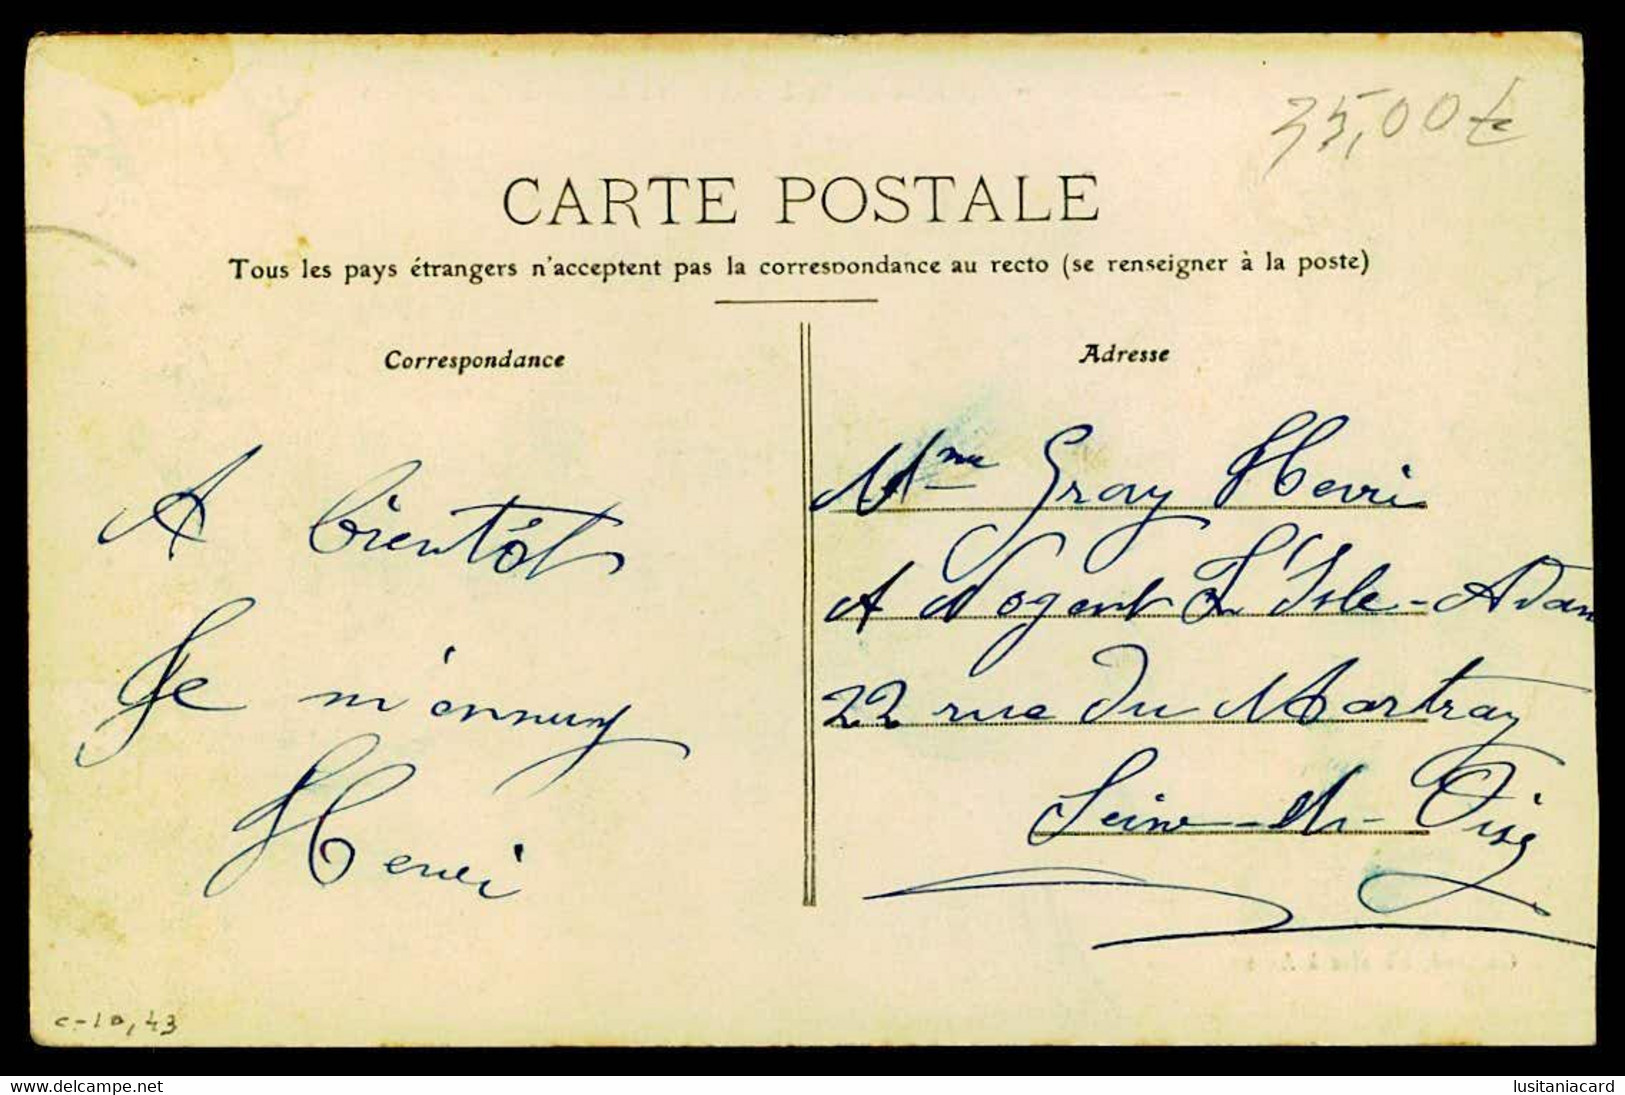 35,00 €
CARTE POSTALE
Tous les pays étrangers n'acceptent pas la correspondance au recto (se renseigner à la poste)
Correspondance
A bientôt
Je m'ennuy
Henri
Adresse
Mme Gray Henri
A Nogent L'Isle-Adam
22 rue du Martray
Seine-et-Oise
c-10,43
www.delcampe.net
lusitaniacard